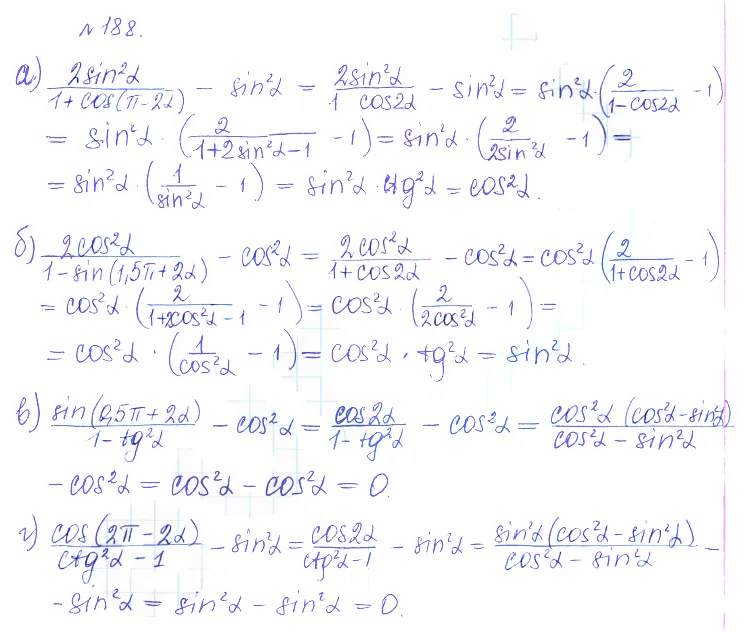 № 188.
а) 2sin²α/(1+cos(π-2α)) - sin²α = 2sin²α/(1 cos2α) - sin²α = sin²α·(2/(1-cos2α) - 1)
= sin²α · (2/(1+2sin²α-1) - 1) = sin²α · (2/(2sin²α) - 1) =
= sin²α · (1/sin²α - 1) = sin²α · ctg²α = cos²α.
б) 2cos²α/(1-sin(1,5π+2α)) - cos²α = 2cos²α/(1+cos2α) - cos²α = cos²α (2/(1+cos2α) - 1)
= cos²α · (2/(1+2cos²α-1) - 1) = cos²α · (2/(2cos²α) - 1) =
= cos²α · (1/cos²α - 1) = cos²α · tg²α = sin²α.
в) sin(0,5π+2α)/(1-tg²α) - cos²α = cos2α/(1-tg²α) - cos²α = cos²α (cos²α-sin²α)/(cos²α - sin²α)
- cos²α = cos²α - cos²α = 0.
г) cos(2π-2α)/(ctg²α-1) - sin²α = cos2α/(ctg²α-1) - sin²α = sin²α(cos²α-sin²α)/(cos²α-sin²α) -
- sin²α = sin²α - sin²α = 0.